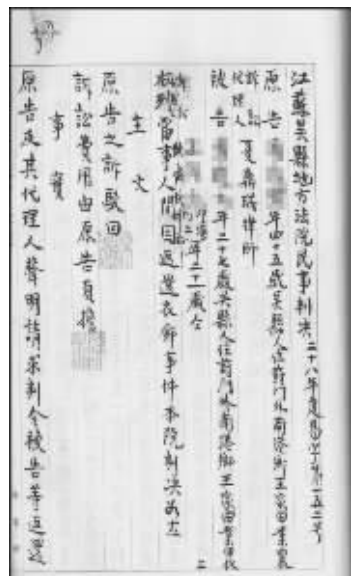 江蘇吳縣地方法院民事判決二十八年
原告 年四十五歲吳縣人住葑門外南港鄉王家田業農
訴訟代理人 夏 律師
被告 年二十七歲吳縣人住葑門外南港鄉王家田業農
年二十一歲仝
右當事人間因返還衣飾事件本院判決如左
主文
原告之訴駁回
訴訟費用由原告負擔
事實
原告及其代理人聲明請求判令被告等返還